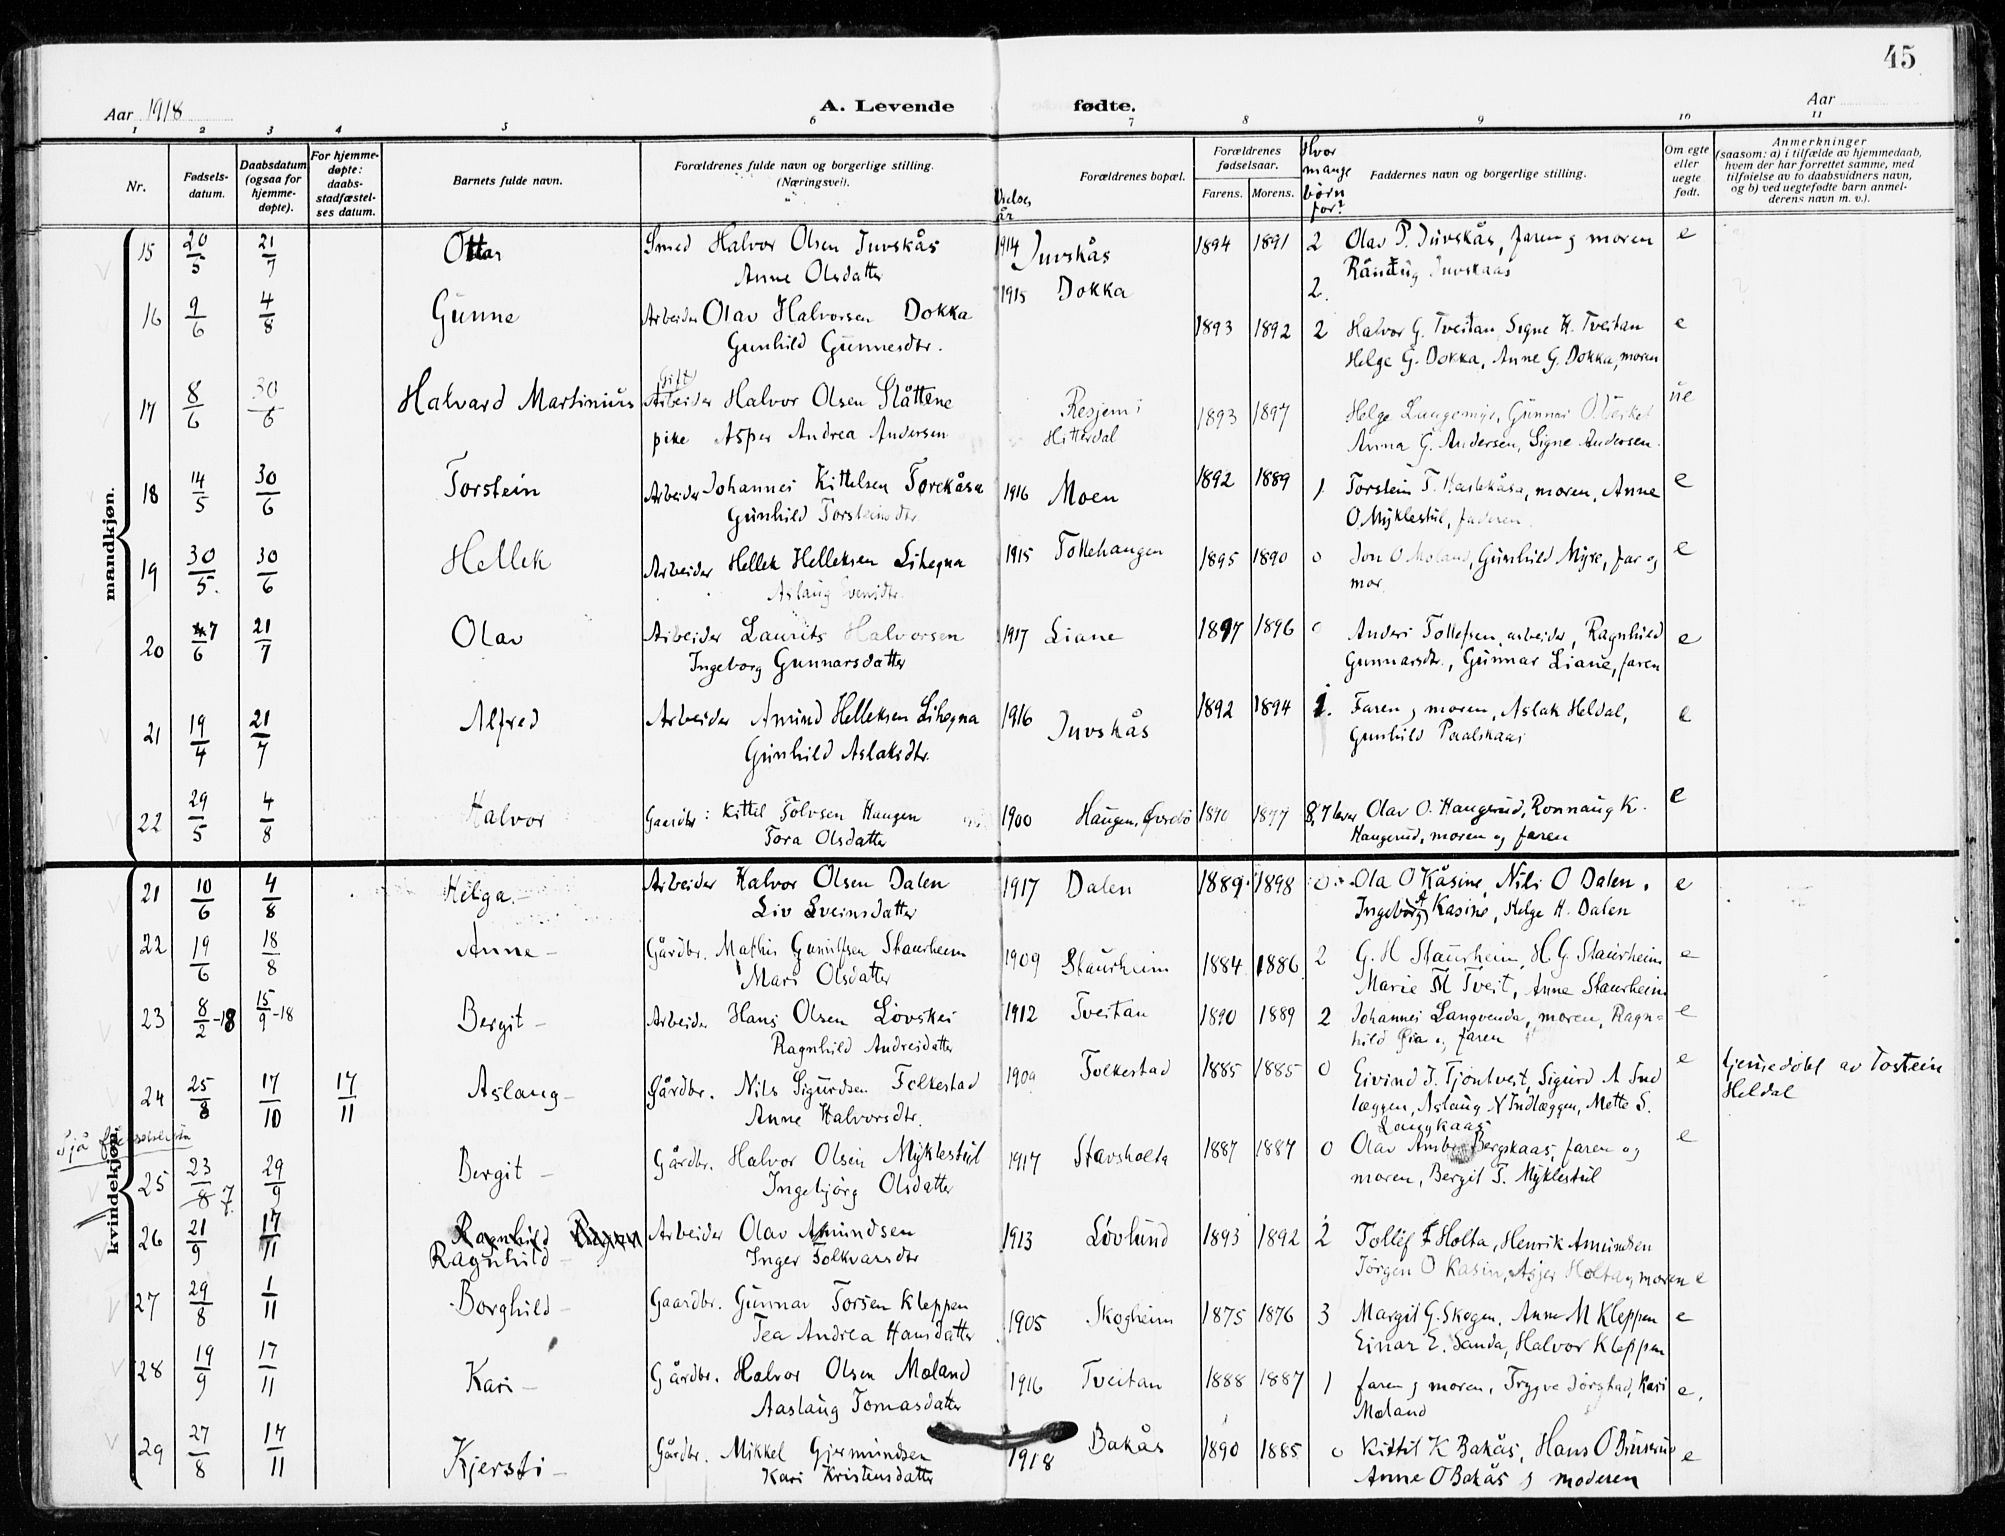 45
Aar 1918
A. Levende fødte.
Aar
1 2 3 4 5 6 7 8 9 10 11
Nr.
Fødsels-
datum.
Daabsdatum
(ogsaa for
hjemme-
døpte).
For hjemme-
døpte:
daabs-
stadfæstel-
ses datum.
Barnets fulde navn.
Forældrenes fulde navn og borgerlige stilling.
(Næringsvei).
Forældrenes bopæl.
Forældrenes
fødselsaar.
Farens. Morens.
Hvor
mange
børn
før?
Faddernes navn og borgerlige stilling.
Om egte
eller
uegte
født.
Anmerkninger
(saasom: a) i tilfælde av hjemmedaab,
hvem der har forrettet samme, med
tilføielse av to daabsvidners navn,
og b) ved uegtefødte barn anmel-
derens navn m. v.).
mandkjøn.
15 20/5 21/7 Ottar Smed Halvor Olsen Juvskås 1914 Juvskås 1894 1891 2 Olav P. Juvskås, faren og moren e
Anne Olsdatter Juvskaas
2.
16 9/6 4/8 Gunne Arbeider Olav Halvorsen Dokka 1915 Dokka 1893 1892 2 Halvor G. Tveitan, Signe H. Tveitan e
Gunhild Gunnesdtr. Helge G. Dokka, Anne G. Dokka, moren
17 8/6 30/6 Halvard Martinius Gift Arbeider Halvor Olsen Slåttene Hitterdal 1893 1897 Helge Gunnar ue
pike Asper Andrea Andersen Anna G. Andersen, Signe Andersen.
18 14/5 30/6 Torstein Arbeider Johannes Kittelsen 1916 Moen 1892 1889 1 Torstein T. moren, Anne e
Gunhild Torsteinsdtr O. Myklestul, faderen.
19 30/5. 30/6 Hellek Arbeider Hellek Helleksen Lihegna 1915 Tollehaugen 1895 1890 0 Jon O Moland, Gunhild Myre, far og e
Aslaug mor.
20 7/6 21/7 Olav Arbeider Laurits Halvorsen 1917 Liane 1897 1896 0 Anders Tollefsen, arbeider, Ragnhild e
Ingeborg Gunnarsdatter Gunnarsdtr., Gunnar Liane, faren
21 19/4 21/7 Alfred Arbeider Amund Helleksen Lihegna 1916 Juvskås 1892 1894 1. Faren og moren, Aslak Heldal, e
Gunhild Aslaksdtr. Gunhild Paalskaas
22 29/5 4/8 Halvor Gaardbr: Kittel Tolvsen Haugen 1900 Haugen, 1870 1877 8, 7 lever Olav O. Haugerud, Ronnaug K. e
Tora Olsdatter Haugerud, moren og faren
kvindekjøn.
21 10/6 4/8 Helga. Arbeider Halvor Olsen Dalen 1917 Dalen 1889 1898 0 Ola O Kåsine, Nils O Dalen. e
Liv Sveinsdatter Ingeborg Kasine, Helge H. Dalen
22 19/6 18/8 Anne - Gårdbr. Mathis Gunulfsen Staurheim 1909 Staurheim 1884 1886 2 G. H Staurheim, H. G. Staurheim e
Mari Olsdatter Marie M Tveit, Anne Staurheim
23 8/2-18 15/9-18 Bergit - Arbeider Hans Olsen Løvskei 1912 Tveitan 1890 1889 2 Johannes Langvenda, moren, Ragn= e
Ragnhild Andresdatter hild Øia og faren
24 25/8 17/10 17/11 Aslaug - Gårdbr. Nils Sigurdsen Folkestad 1909 Folkestad 1885 1885 0 Eivind J. Tjøntveit, Sigurd A Ind e hjemedøbt av Tostein
Anne Halvorsdtr. læggen, Aslaug N Indlæggen, Mette S. Heldal
Langkaas
Sjå
25 23/8 7 29/9 Bergit - Gårdbr. Halvor Olsen Myklestul 1917 Stavsholta 1887 1887 0 Olav Bergskaas, faren og e
Ingebjørg Olsdatter moren, Bergit T. Myklestul
26 21/9 17/11 Ragnhild Arbeider Olav Amundsen 1913 Løvlund 1893 1892 2 Tollef Holta, Henrik Amundsen
Ragnhild - Inger Folkvarsdtr Jørgen O Kasin, Asjer Holta og moren e
27 29/8 1/11 Borghild - Gaardbr. Gunnar Torsen Kleppen 1905 Skogheim 1875 1876 3 Margit G. Skogen, Anne M Kleppen e
Tea Andrea Hansdatter Einar E. Sanda, Halvor Kleppen
28 19/9 17/11 Kari - Gårdbr. Halvor Olsen Moland 1916 Tveitan 1888 1887 1 faren og moren, Trygve Jørstad, Kari e,
Aaslaug Tomasdatter Moland
29 27/8 17/11 Kjersti - Gårdbr. Mikkel Gjermundsen 1918 Bakås 1890 1885 0 Kittil K Bakås, Hans O e
Kari Kristensdatter Anne O Bakås og moderen